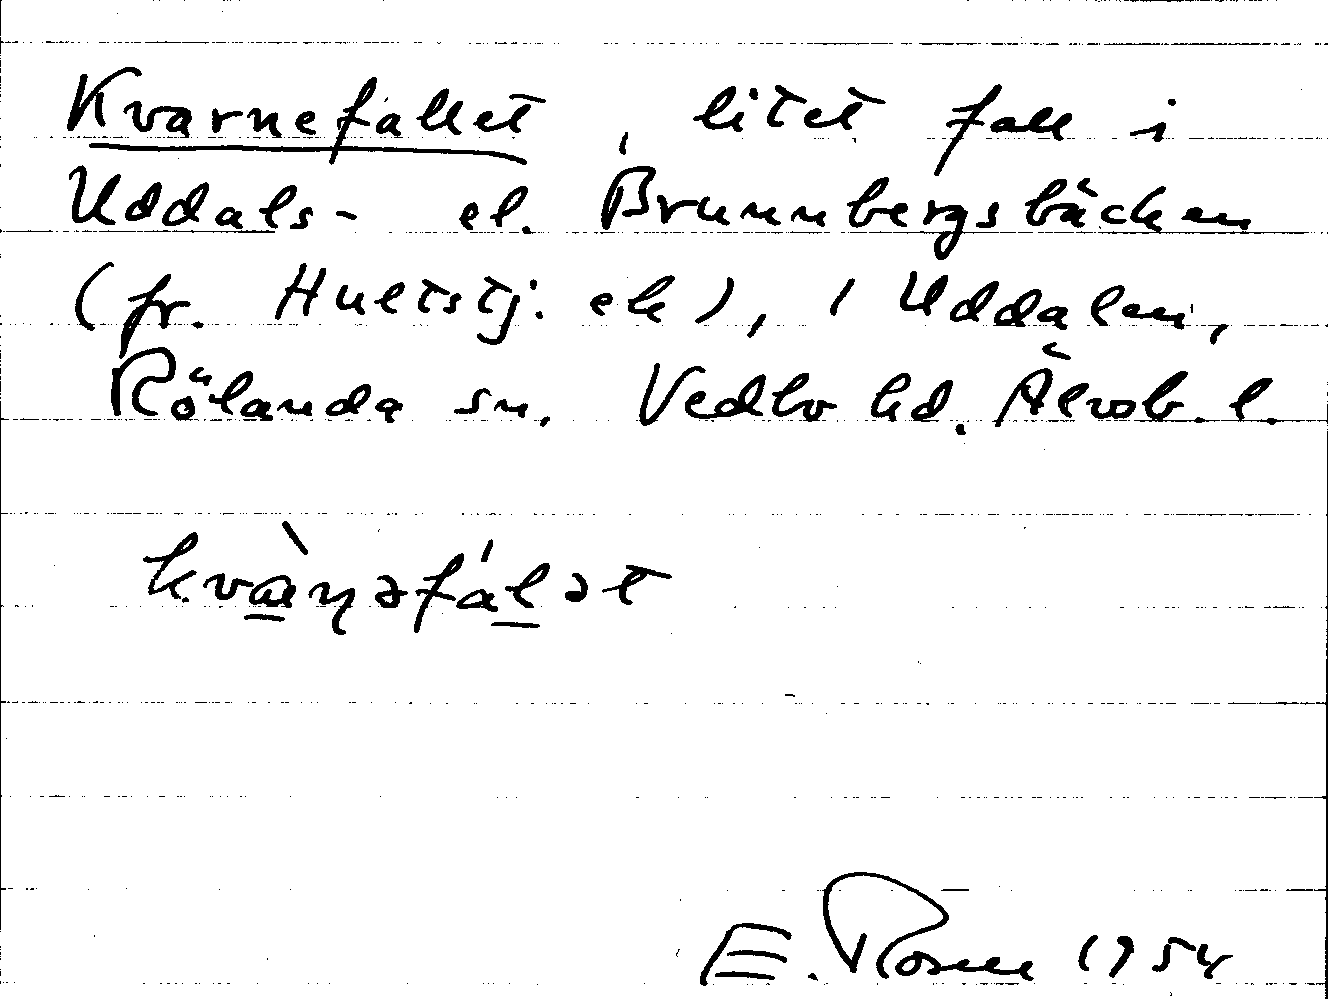 Kvarnefallet, litet fall i
Uddals- el. Brunnbergsbäcken
(fr. Hultstj. etc), i Uddalen,
Rölanda sn, Vedbo hd. Älvsb. l.
kvà̱ɳəfálət
E. Rosell 1954